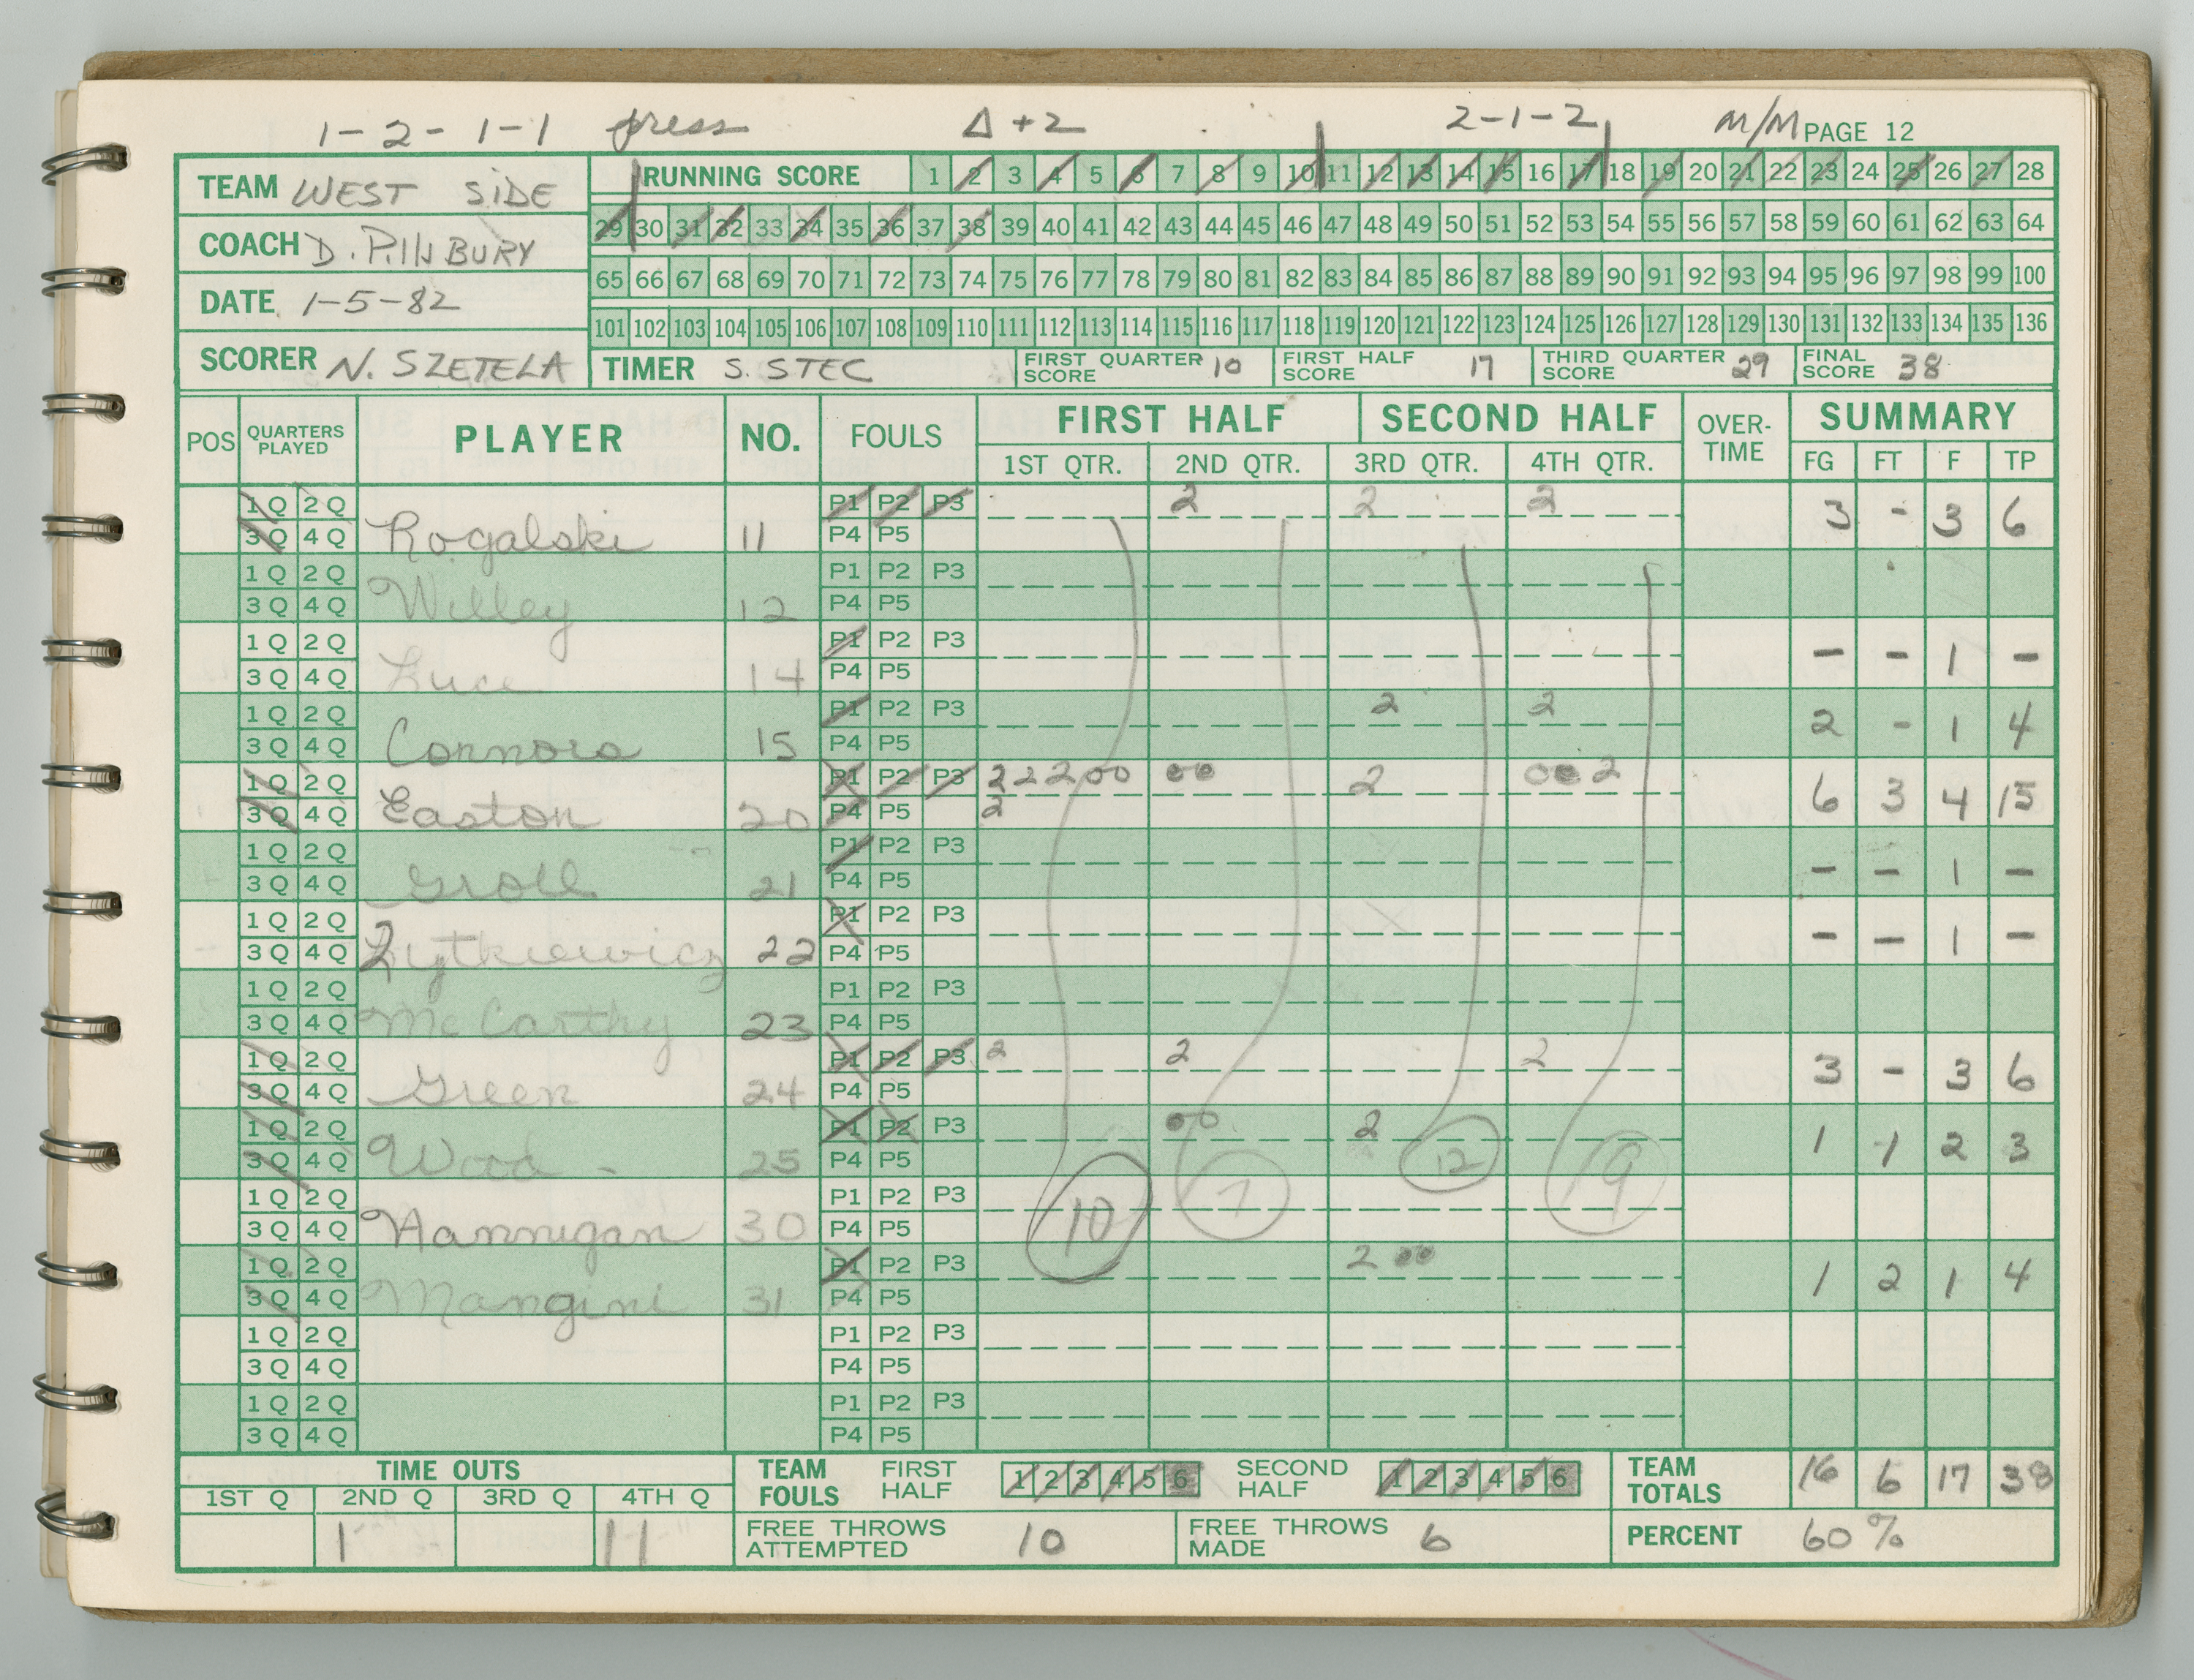 1-2-1-1 press Δ+2 2-1-2 M/M PAGE 12
TEAM WEST SIDE
COACH D.
DATE 1-5-82
SCORER N. SZETELA
RUNNING SCORE 1 2 3 4 5 6 7 8 9 10 11 12 13 14 15 16 17 18 19 20 21 22 23 24 25 26 27 28
29 30 31 32 33 34 35 36 37 38 39 40 41 42 43 44 45 46 47 48 49 50 51 52 53 54 55 56 57 58 59 60 61 62 63 64
65 66 67 68 69 70 71 72 73 74 75 76 77 78 79 80 81 82 83 84 85 86 87 88 89 90 91 92 93 94 95 96 97 98 99 100
101 102 103 104 105 106 107 108 109 110 111 112 113 114 115 116 117 118 119 120 121 122 123 124 125 126 127 128 129 130 131 132 133 134 135 136
TIMER S. STEC FIRST QUARTER SCORE 10 FIRST HALF SCORE 17 THIRD QUARTER SCORE 29 FINAL SCORE 38
POS QUARTERS PLAYED PLAYER NO. FOULS FIRST HALF SECOND HALF OVER-TIME SUMMARY
1ST QTR. 2ND QTR. 3RD QTR. 4TH QTR. FG FT F TP
1Q 2Q P1 P2 P3 2 2 2
3Q 4Q Rogalski 11 P4 P5 3 - 3 6
1Q 2Q P1 P2 P3
3Q 4Q Willey 12 P4 P5
1Q 2Q P1 P2 P3
3Q 4Q Luce 14 P4 P5 - - 1 -
1Q 2Q P1 P2 P3 2 2
3Q 4Q Connors 15 P4 P5 2 - 1 4
1Q 2Q P1 P2 P3 2 2 2 0 0 0 0 2 0 0 2
3Q 4Q Easton 20 P4 P5 2 6 3 4 15
1Q 2Q P1 P2 P3
3Q 4Q Groll 21 P4 P5 - - 1 -
1Q 2Q P1 P2 P3
3Q 4Q Zytkiewicz 22 P4 P5 - - 1 -
1Q 2Q P1 P2 P3
3Q 4Q McCarthy 23 P4 P5
1Q 2Q P1 P2 P3 2 2 2
3Q 4Q Green 24 P4 P5 3 - 3 6
1Q 2Q P1 P2 P3 0 0 2
3Q 4Q Wood - 25 P4 P5 12 1 1 2 3
1Q 2Q P1 P2 P3 10 7 9
3Q 4Q Hannigan 30 P4 P5
1Q 2Q P1 P2 P3 2 0 0
3Q 4Q Mangini 31 P4 P5 1 2 1 4
1Q 2Q P1 P2 P3
3Q 4Q P4 P5
1Q 2Q P1 P2 P3
3Q 4Q P4 P5
TIME OUTS
1ST Q 2ND Q 3RD Q 4TH Q
1 11
TEAM FOULS FIRST HALF 1 2 3 4 5 6 SECOND HALF 1 2 3 4 5 6 TEAM TOTALS 16 6 17 38
FREE THROWS ATTEMPTED 10 FREE THROWS MADE 6 PERCENT 60%